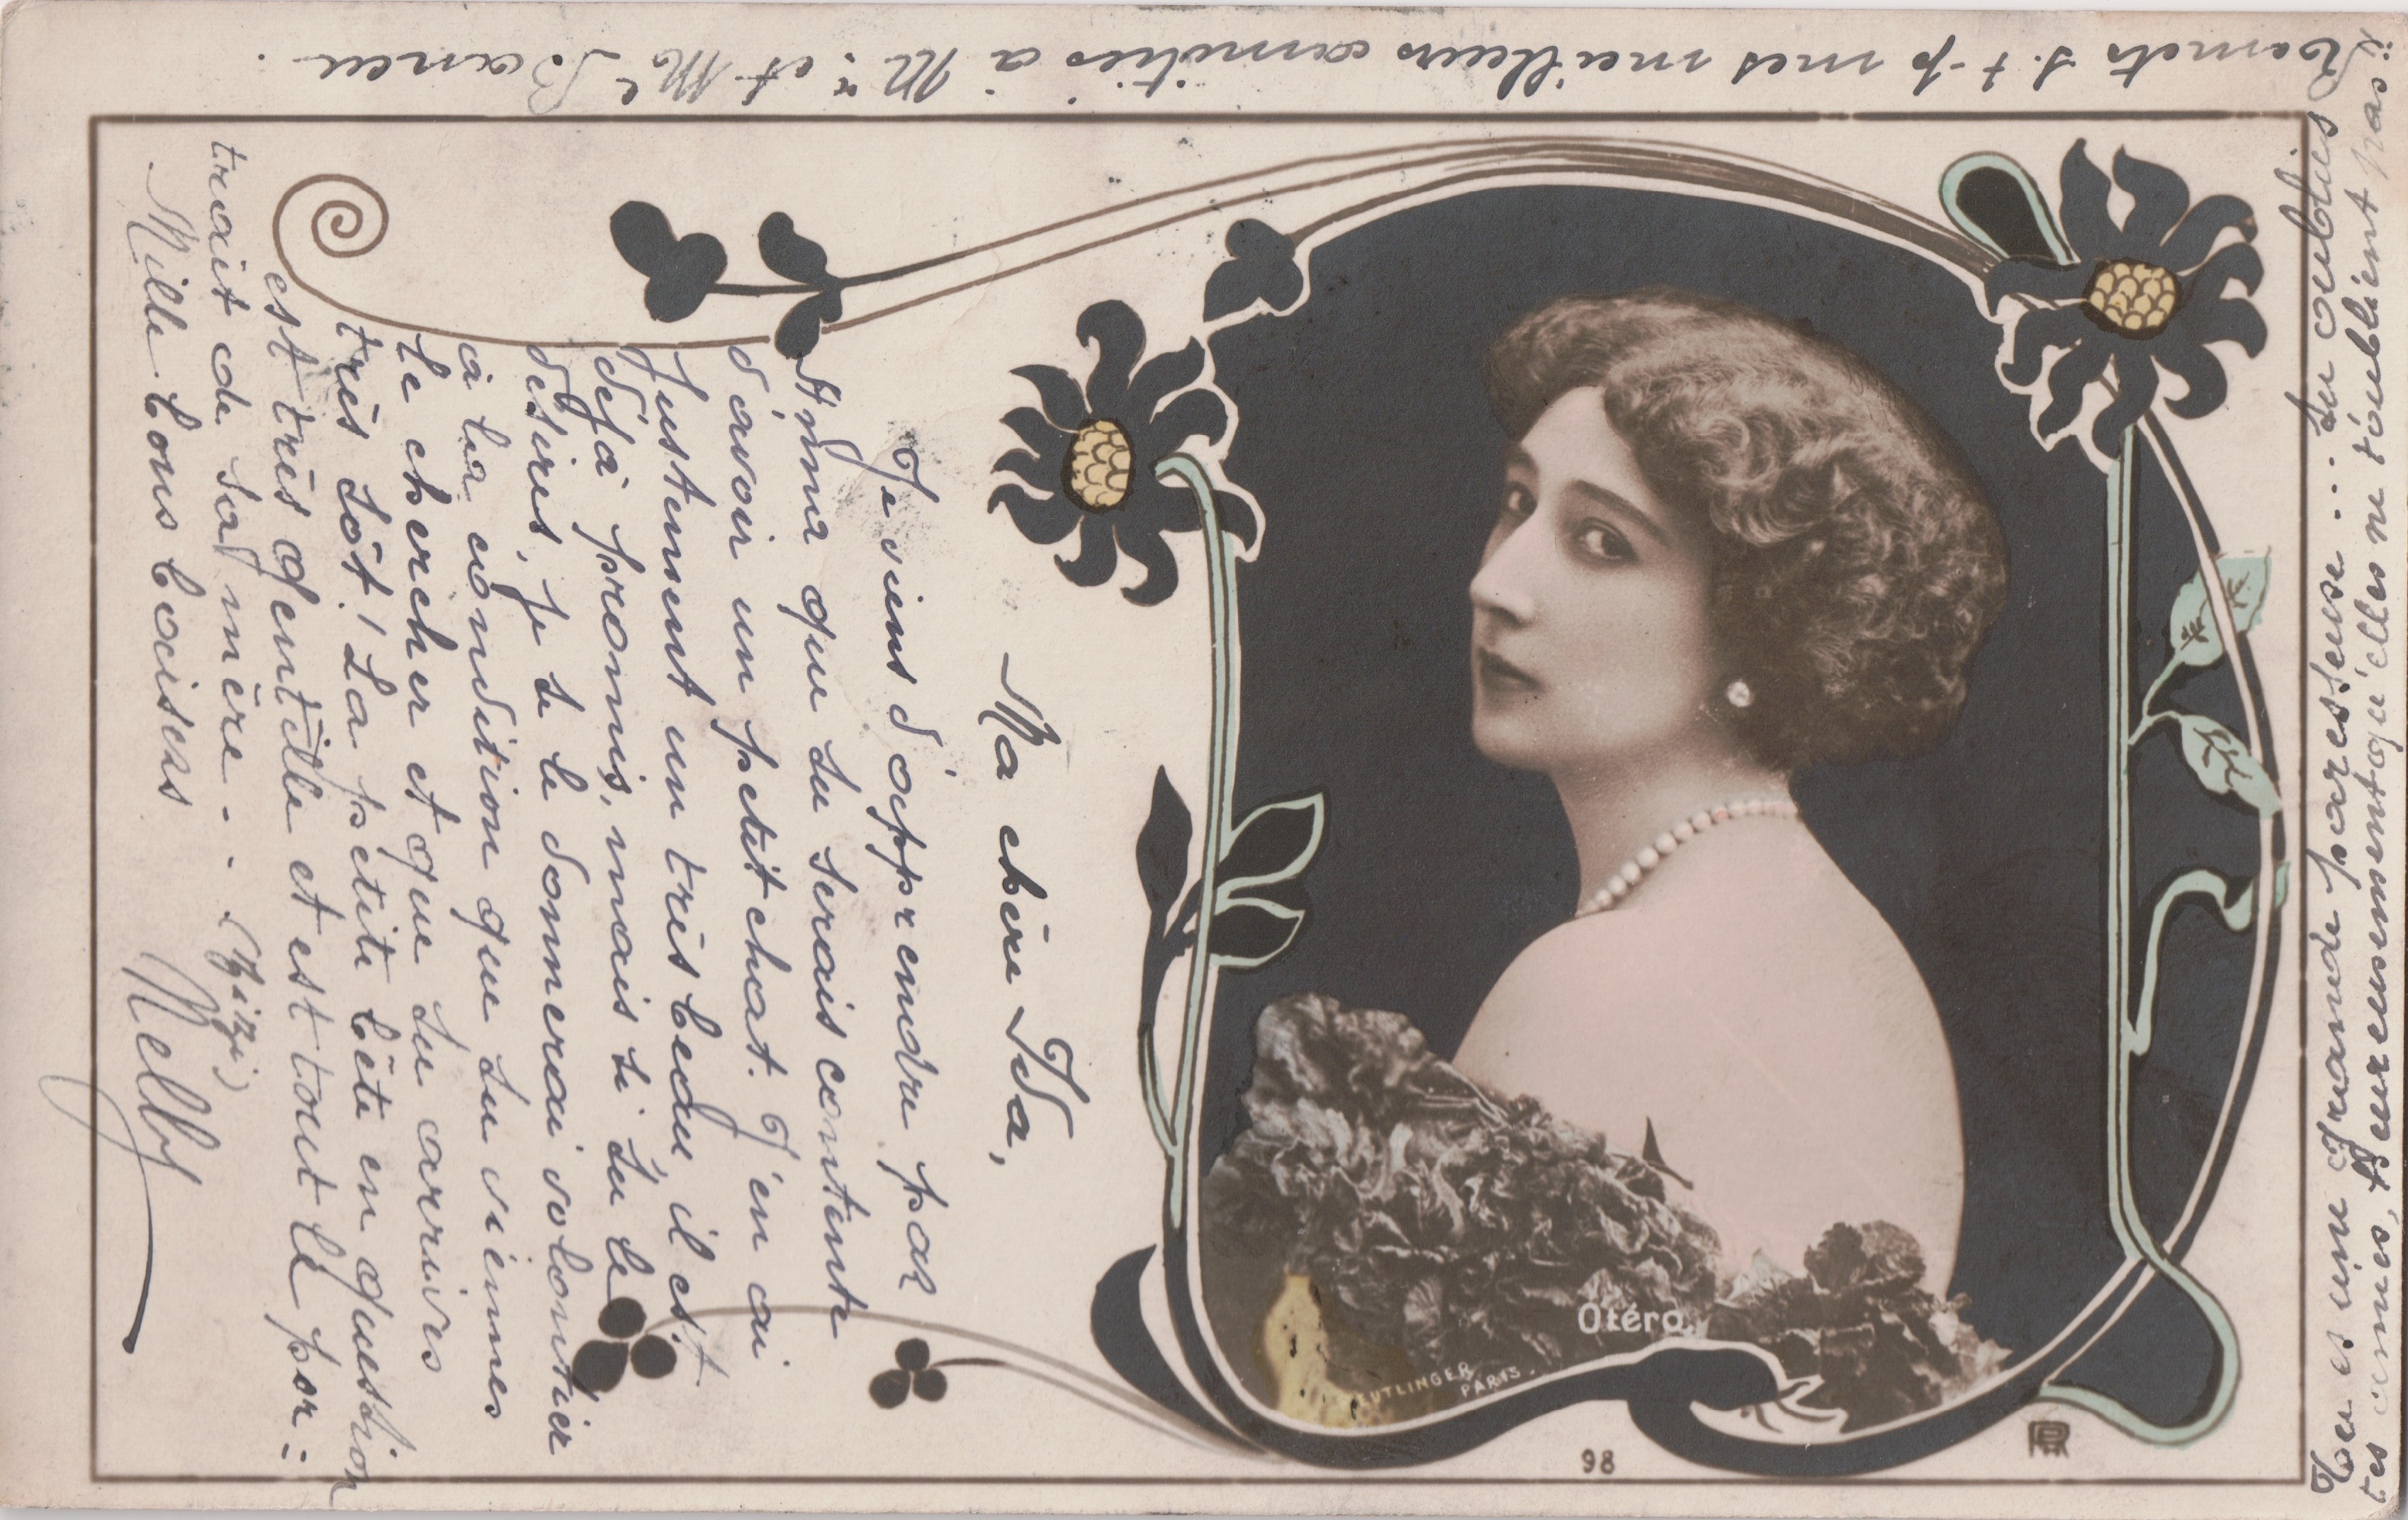 Ma chère Ida,
Je viens d'apprendre par
Irma que tu serais contente
d'avoir un petit chat. J'en ai
justement un très beau, il est
déjà promis, mais si tu le
désires, je te le donnerai volontier
à la condition que tu viennes
le chercher et que tu arrives
très tôt! La petite bête en question
est très gentille et est tout le por=
trait de sa mère... (Zizi)
Mille bons baisers
Nelly
Tu es une grande paresseuse... tu oublies
tes amies, heureusement qu'elles ne t'oublient pas!!
Remets s. t-p mes meilleurs amitiés à Mr et Me
Otéro.
REUTLINGER
PARIS.
98